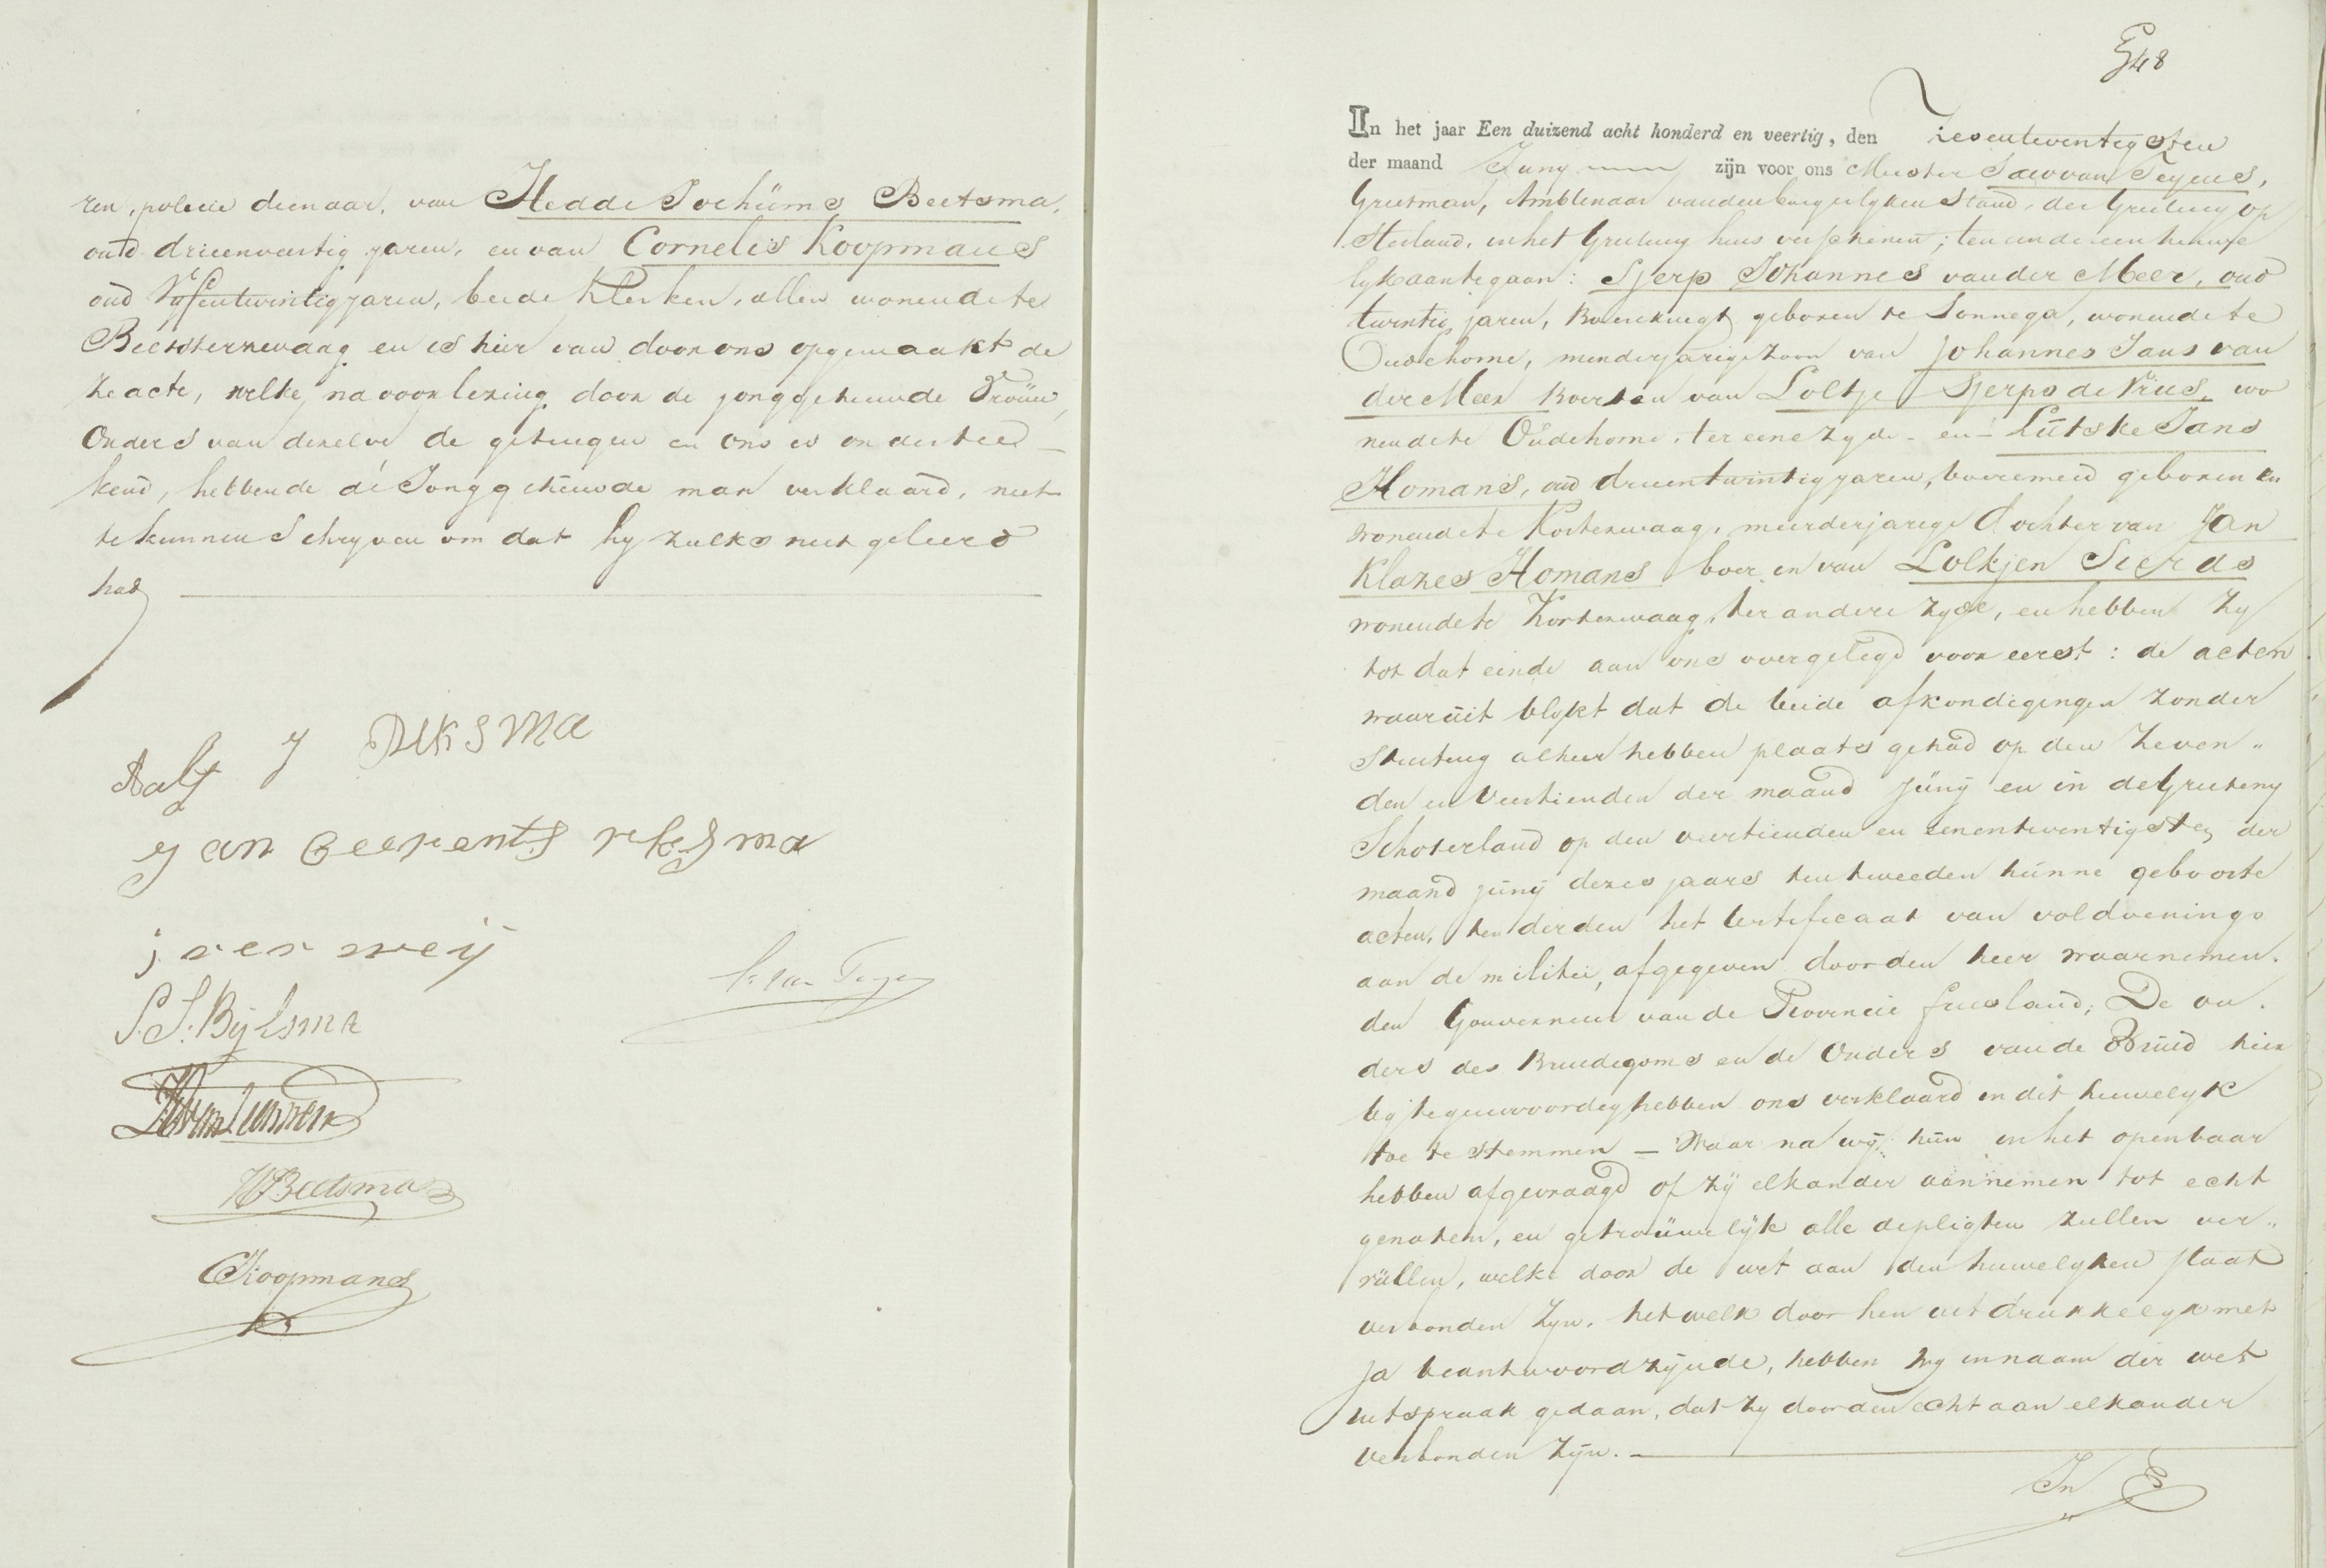 ren, policie dienaar, van Hedde Jochüms Beetsma,
oud drieenveertig jaren, en van Cornelis Koopmans
oud Vyfentwintig jaren, beide Klerken, allen wonende te
Beetsterzwaag en is hier van door ons opgemaakt de
ze acte, welke na voorlezing door de jonggehuwde Vrouw,
Ouders van dezelve de getuigen en ons is onderteе
kend, hebbende de Jonggehuwde man verklaard, niet
te kunnen Schryven om dat hy zulks niet geleerd
had
Aalf J Riksma
Jan Beerents
j ver weij
S. S. Bijlsma
van Teyens
HBeetsma
CKoopmans
48
In het jaar Een duizend acht honderd en veertig, den zesentwintigsten
der maand Juny zijn voor ons Meester Saco van Teyens,
Grietman, Ambtenaar van den burgerlyken Stand, der Grieteny Op
sterland, in het Grieteny huis verschenen; ten einde een huwe
lyk aan te gaan: Sjerp Johannes van der Meer, oud
twintig jaren, Boereknegt geboren te Sonnega, wonende te
Oudehorne, minderjarige zoon van Johannes Jans van
der Meer en van Loltje Sjerps de Vries, wo
nende te Oudehorne, ter eene zyde - en - Lutske Jans
Homans, oud drieentwintig jaren, boeremeid geboren en
wonende te Kortezwaag, meerderjarige dochter van Jan
Klazes Homans boer en van Lolkjen Sierds
wonende te Kortezwaag, ter andere zyde, en hebben zy
tot dat einde aan ons overgelegd voor eerst: de acten
waarüit blykt dat de beide afkondigingen zonder
stuiting alhier hebben plaats gehad op den Zeven„
den en Veertienden der maand Jüny en in de Grieteny
Schoterland op den veertienden en eenentwintigsten der
maand jüny dezes jaars ten tweeden hünne geboorte
acten, ten derden het Certificaat van voldoenings
aan de militie, afgegeven door den heer waarnemen.
den Gouverneur van de Provincie friesland; De ou.
ders des Bruidegoms en de Ouders van de Bruid hier
by tegenwoordig hebben ons verklaard in dit huwelyk
toe te stemmen — Waar na wij hün in het openbaar
hebben afgevraagd of zÿ elkander aannemen tot echt
genoten, en getrouwelÿk alle de pligten zullen ver„
vüllen, welke door de wet aan den huwelyken staat
verbonden zyn, het welk door hen uitdrukkelyk met
Ja beantwoord zÿnde, hebben wy in naam der wet
uitspraak gedaan, dat zy door den echt aan elkander
verbonden zÿn. —
In